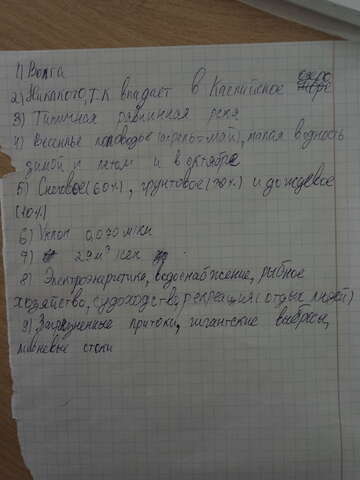 1) Волга
2) Никакого, т.к впадает в Каспийское озеро
3) Типичная равнинная река
4) весеннье половодье (апрель-май), малая водность
зимой и летом и в октябре
5) Снеговое (60%), грунтовое (30%) и дождевое
(10%)
6) Уклон 0,070 м/км
7) 29 м³/сек
8) Электроэнергитика, водоснабжение, рыбное
хозяйство, судоходство, рекреация (отдых людей)
9) Загрязненные притоки, гигантские выбросы,
ливневые стоки